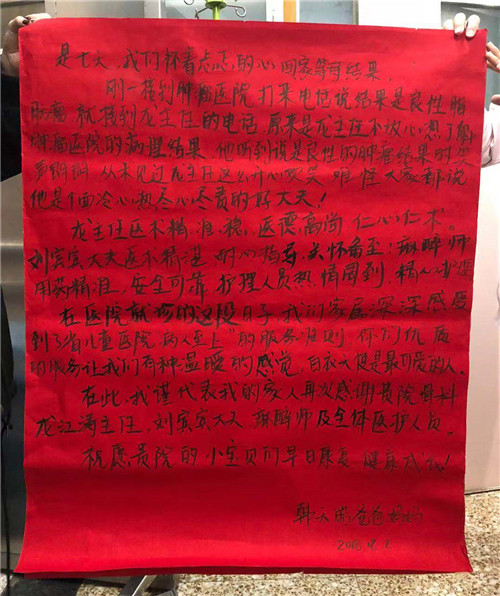 是七天，我们怀着忐忑的心回家等待结果。
刚一接到肿瘤医院打来电话说结果是良性脂
肪瘤就接到龙主任的电话，原来是龙主任不放心，热
肿瘤医院的病理结果。他听到说是良性的肿瘤结果时笑
从未见过龙主任这么开心的笑，难怪大家都说
他是个面冷心热尽心尽责的好大夫！
龙主任医术精、准、稳，医德高尚仁心仁术。
刘宾宾大夫医术精湛耐心指导，关怀备至；麻醉师
用药精准，安全可靠，护理人员热情周到，精心护理
在医院就诊的这段日子，我们家属深深感受
到了省儿童医院"病人至上"的服务准则，你们优质
的服务让我们有种温暖的感觉，白衣天使是最可爱的人。
在此，我谨代表我的家人再次感谢贵院骨科
龙江涛主任，刘宾宾大夫，麻醉师及全体医护人员。
祝愿贵院的小宝贝们早日康复，健康成长！
韩天 爸爸妈妈